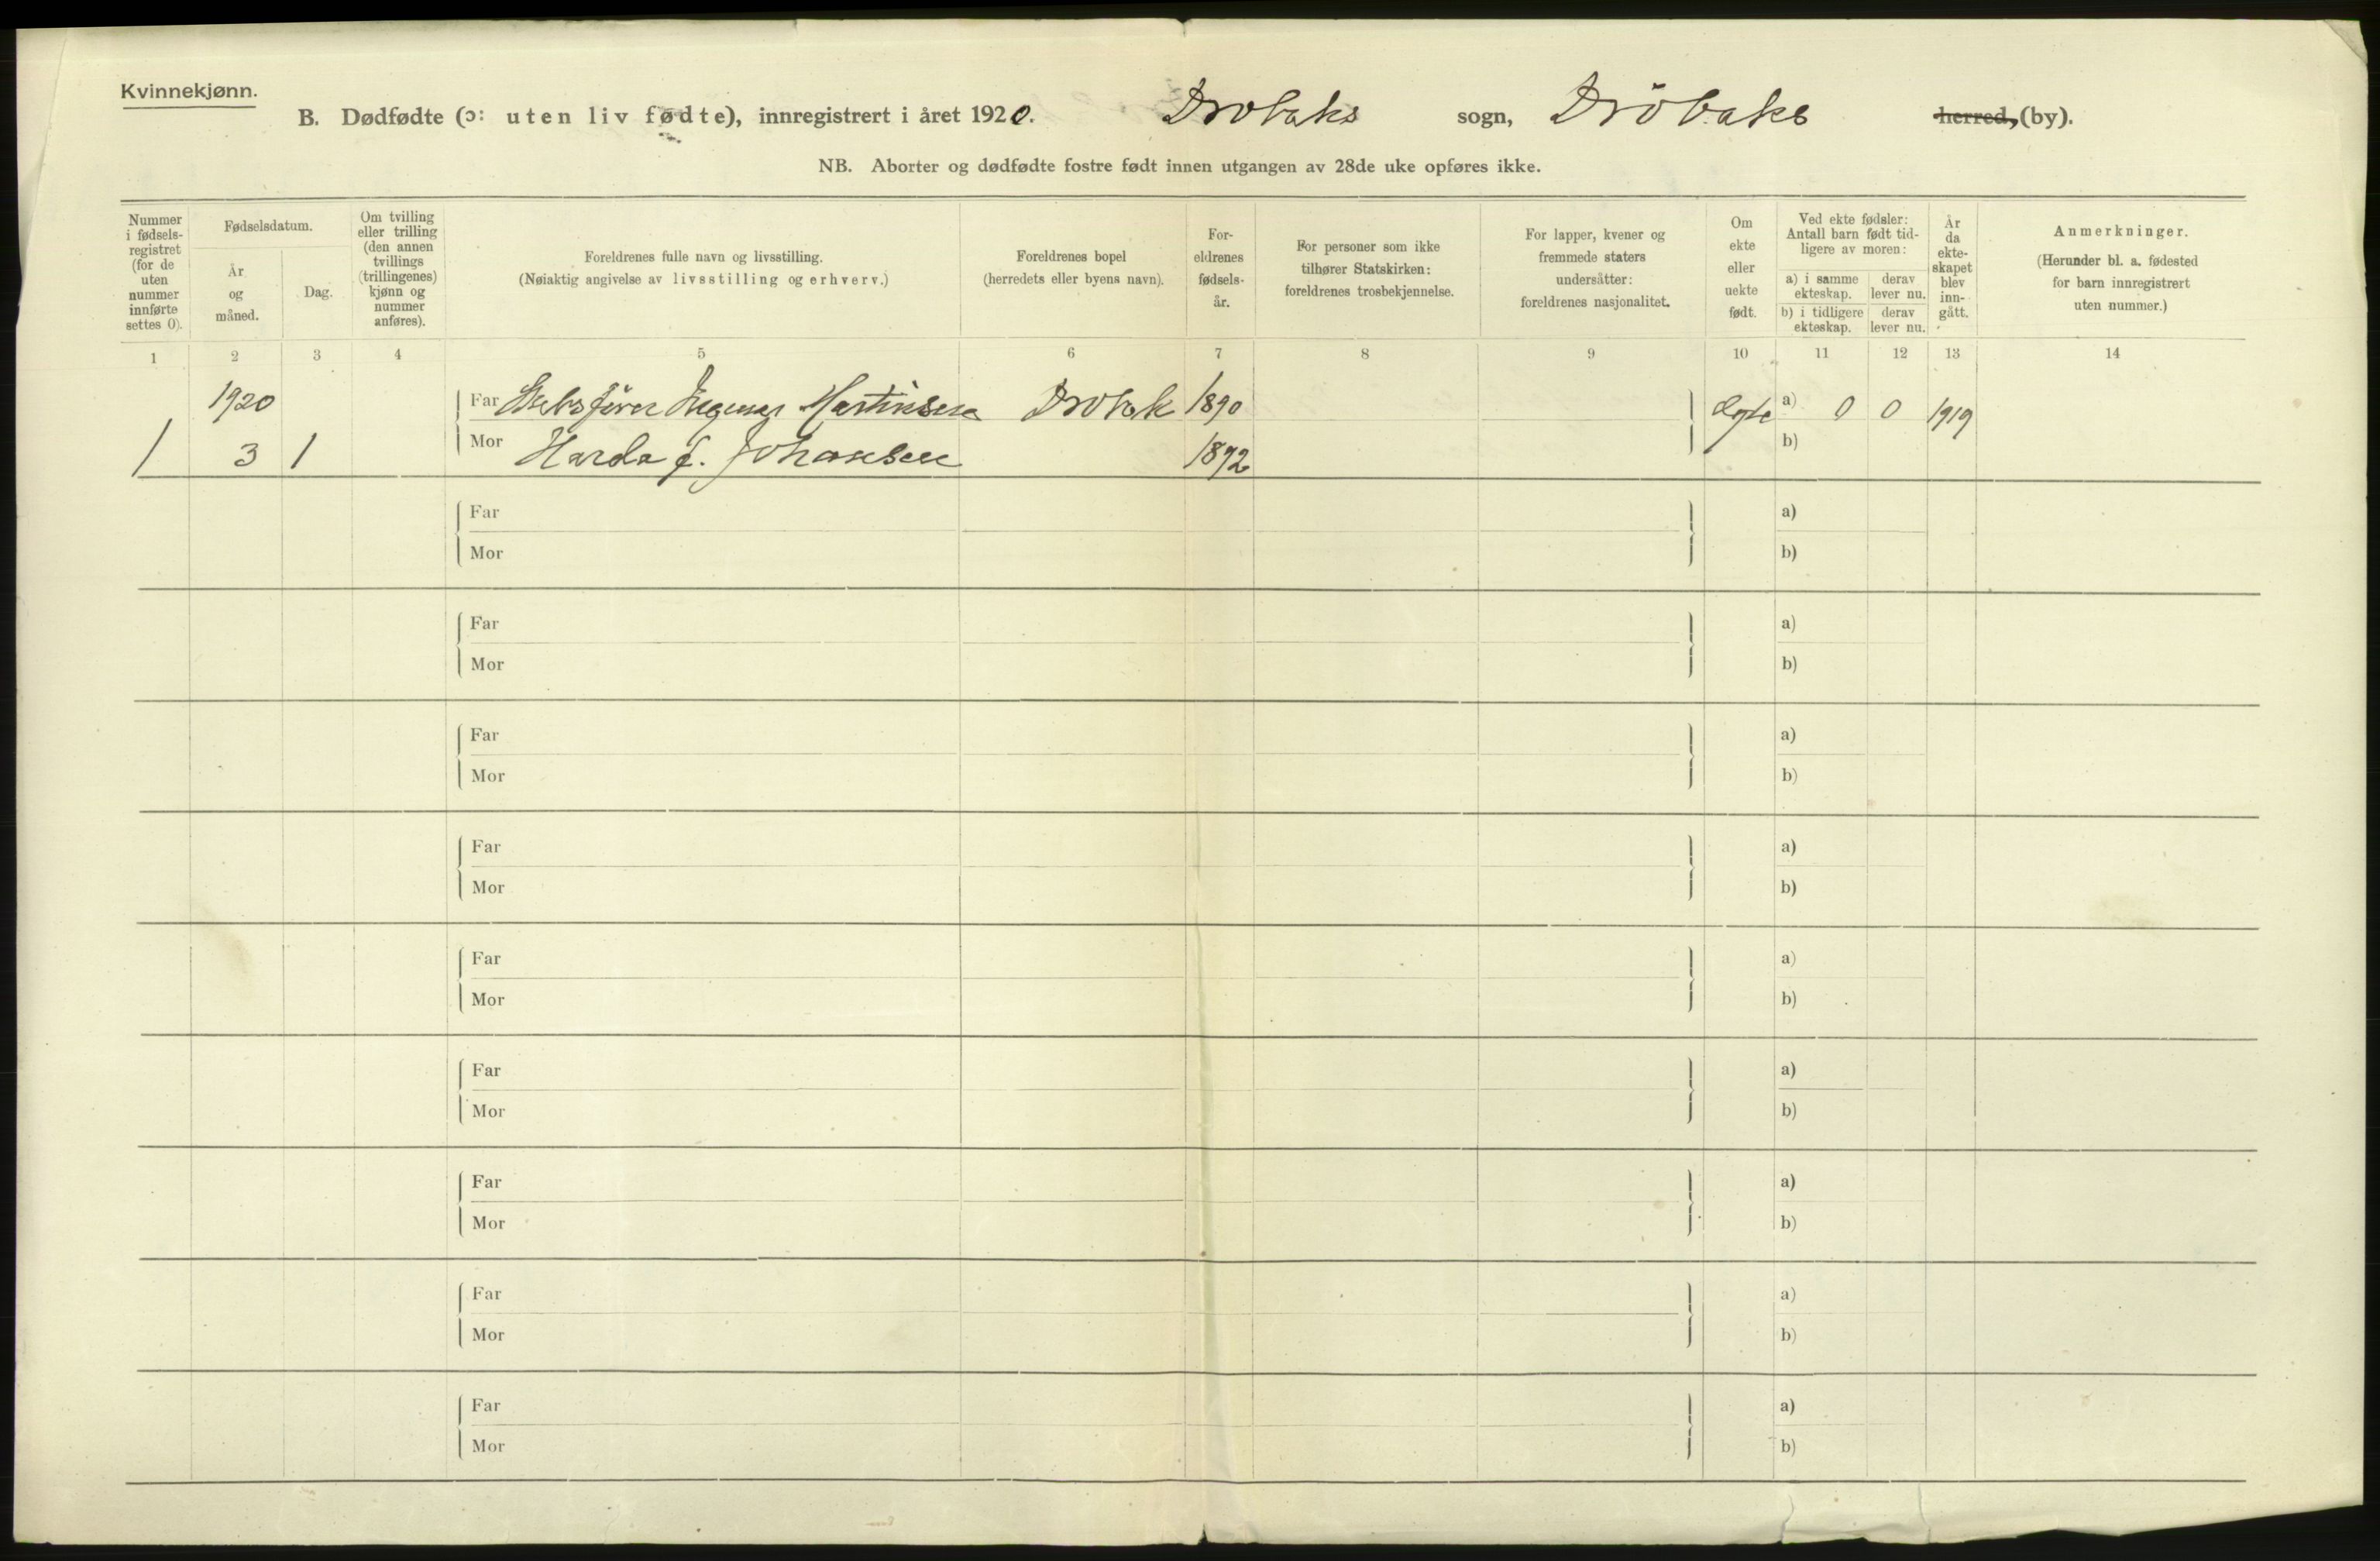 Kvinnekjønn.
B. Dødfødte (ɔ: uten liv fødte), innregistrert i året 1920. Drobaks sogn, Dröbaks herred, (by).
NB. Aborter og dødfødte fostre født innen utgangen av 28de uke opføres ikke.
Nummer i fødsels- registret (for de uten nummer innførte settes 0).
Fødselsdatum.
År og måned.
Dag.
Om tvilling eller trilling (den annen tvillings (trillingenes) kjønn og nummer anføres).
Foreldrenes fulle navn og livsstilling.
(Nøiaktig angivelse av livsstilling og erhverv.)
Foreldrenes bopel
(herredets eller byens navn).
For- eldrenes fødsels- år.
For personer som ikke tilhører Statskirken: foreldrenes trosbekjennelse.
For lapper, kvener og fremmede staters undersåtter: foreldrenes nasjonalitet.
Om ekte eller uekte født.
Ved ekte fødsler: Antall barn født tid- ligere av moren:
a) i samme ekteskap.
derav lever nu.
b) i tidligere ekteskap.
derav lever nu.
År da ekte- skapet blev inn- gått.
Anmerkninger.
(Herunder bl. a. fødested for barn innregistrert uten nummer.)
1 2 3 4 5 6 7 8 9 10 11 12 13 14
1920 Far Martinsen Drobak 1890 ægte a) 0 0 1919
1 3 1 Mor Harda f. Johansen 1892 b)
Far a)
Mor b)
Far a)
Mor b)
Far a)
Mor b)
Far a)
Mor b)
Far a)
Mor b)
Far a)
Mor b)
Far a)
Mor b)
Far a)
Mor b)
Far a)
Mor b)